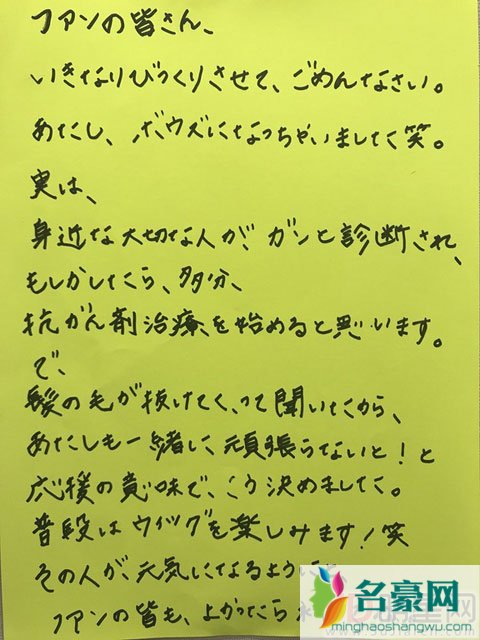 ファンの皆さん、
いきなりびっくりさせて、ごめんなさい。
あたし、ボウズになっちゃいました笑。
実は、
身近な大切な人が、ガンと診断され、
もしかしたら、多分、
抗がん剤治療を始めると思います。
で、
髪の毛が抜けてくって聞いたから、
あたしも一緒に頑張らないと!と
応援の意味で、こう決めました。
普段はウィッグを楽しみます!笑
その人が、元気になるように
ファンの皆も、よかったら
名豪网
minghaoshangwu.com